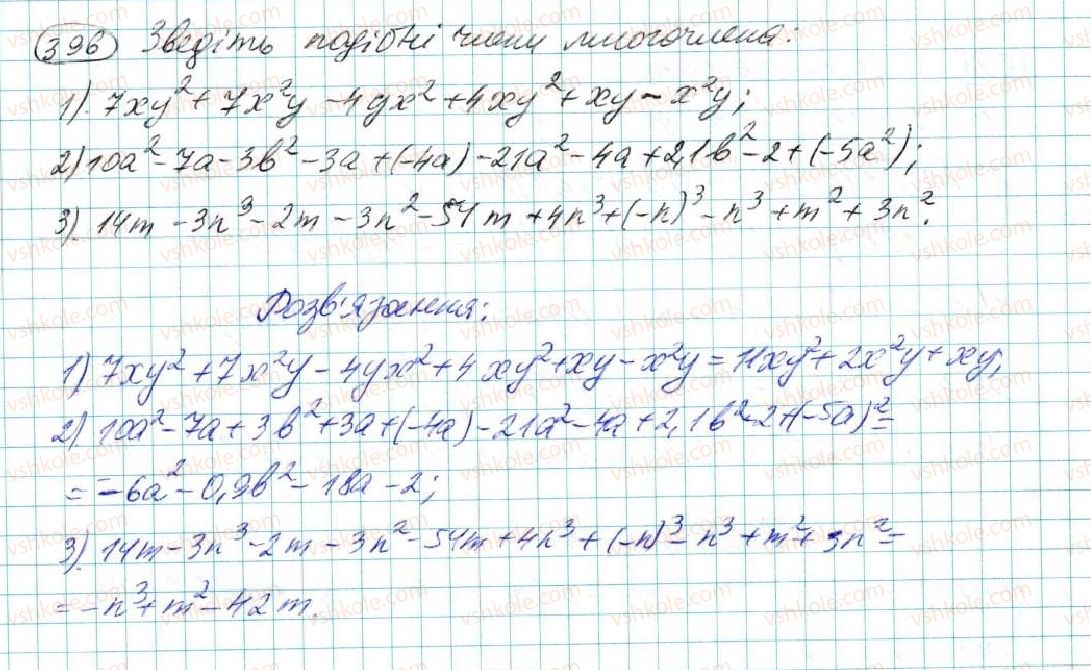 396 Зведіть подібні члени многочлена:
1). 7xy² + 7x²y - 4yx² + 4xy² + xy - x²y;
2) 10a² - 7a - 3b² - 3a + (-4a) - 21a² - 4a + 2,1b² - 2 + (-5a²);
3). 14m - 3n³ - 2m - 3n² - 54m + 4n³ + (-n)³ - n³ + m² + 3n².
Розв'язання:
1) 7xy² + 7x²y - 4yx² + 4xy² + xy - x²y = 11xy² + 2x²y + xy;
2) 10a² - 7a + 3b² + 3a + (-4a) - 21a² - 4a + 2,1b² - 2 + (-5a)² =
= -6a² - 0,9b² - 18a - 2;
3). 14m - 3n³ - 2m - 3n² - 54m + 4n³ + (-n)³ - n³ + m² + 3n² =
= -n³ + m² - 42m.